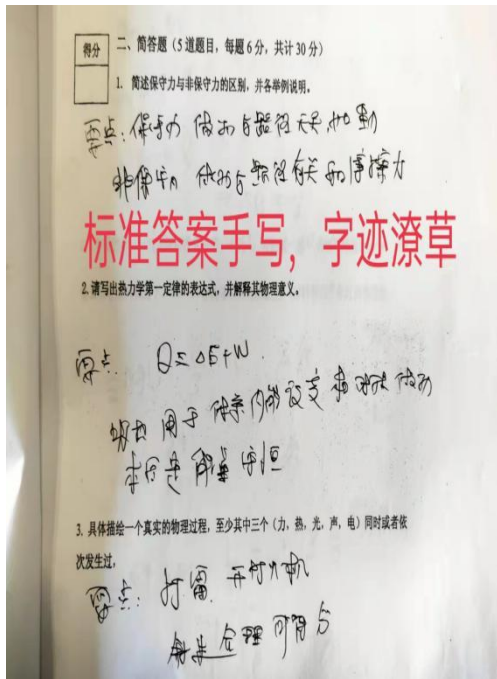 得分
二、简答题（5道题目，每题6分，共计30分）
1. 简述保守力与非保守力的区别，并各举例说明。
要点：保守力 做功与路径无关，如重力
非保守力 做功与路径有关 如摩擦力
标准答案手写，字迹潦草
2.请写出热力学第一定律的表达式，并解释其物理意义。
要点 Q=ΔE+W
吸热用于体系内能改变和对外做功
本质是能量守恒
3. 具体描绘一个真实的物理过程，至少其中三个（力，热，光，声，电）同时或者依
次发生过，
要点：打雷 开打火机
合理即得分